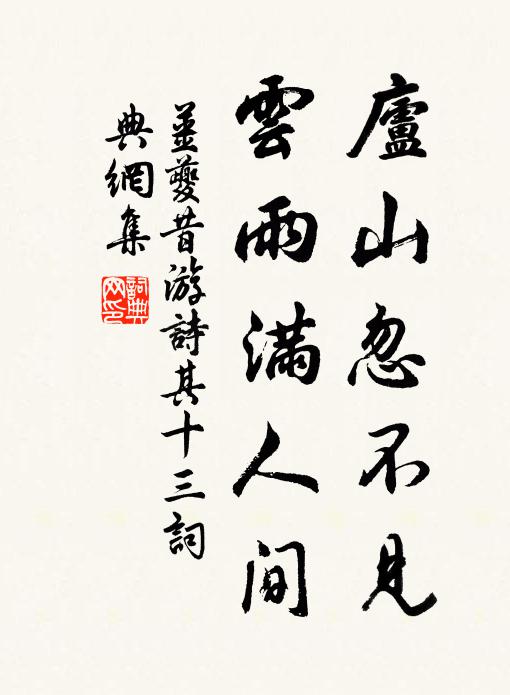 廬山忽不見
雲雨滿人间
姜夔昔游詩其十三詞
典網集
詞典
网印